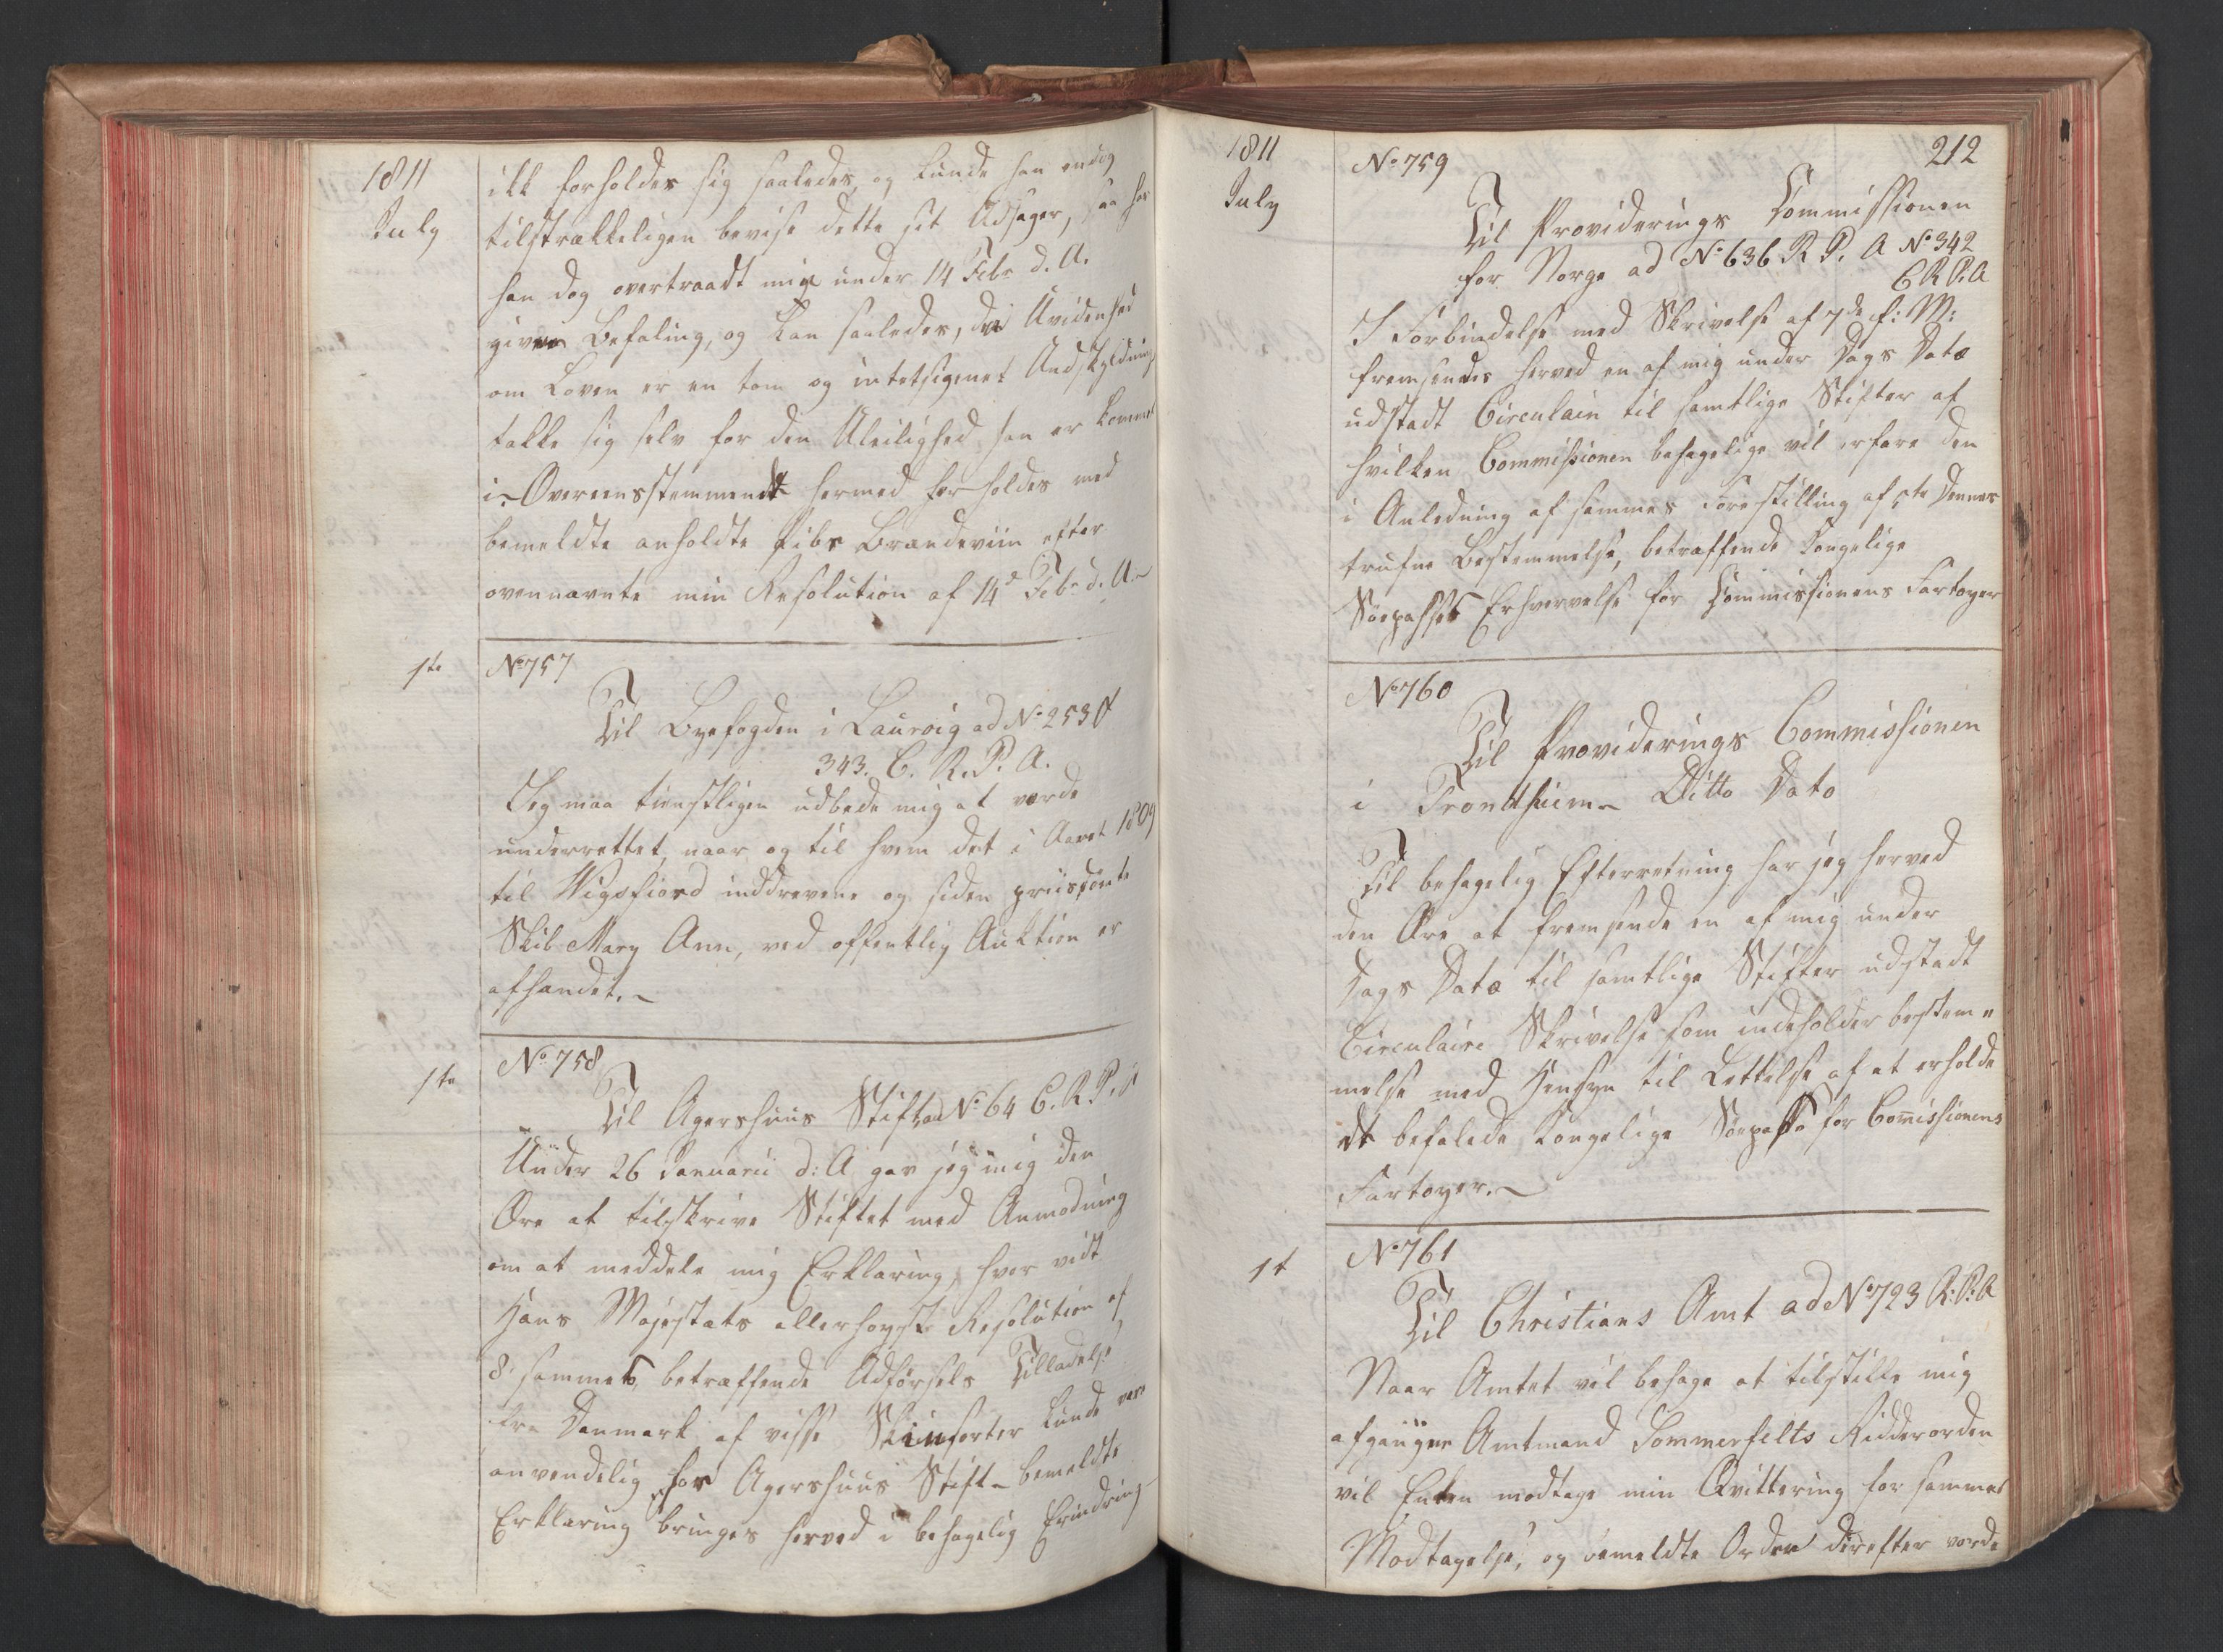 1811
July
ikk forholder sig saaledes, og kunde han endog
tilstrækkeligen bevise dette sit Udsagn, saa har
han dog overtraadt min under 14 Febr d. A.
givne Befaling, og kan saaledes, da Uvidenhed
om Loven er en tom og intetsigenet Undskyldning
takke sig selv for den Uleilighed han er kommet
i. Overeensstemmende hermed forholdes med
bemeldte anholdte Brændeviin efter
ovennævnte min Resolution af 14d Febr d. A.
1te
No 757
Til Byefogden i Laurvig ad No 253 &
343. C. R. P. A.
Jeg maa tienstligen udbede mig at vorde
underrettet, naar og til hvem det i Aaret 1809
til Wigsfiord inddrevene og siden priisdömte
Skib Mary Ann, ved offentlig Auktion er
afhændet.
1te
No 758
Til Agershuus Stift ad No 64 C. R. P. A
Under 26 Januarii d: A gav jeg mig den
Ære at tilskrive Stiftet med Anmodning
om at meddele mig Erklæring, hvor vidt
Hans Majestæts allerhøyste Resolution af
8 sammes, betræffende Udførsels Tilladelse
fra Danmark af visse Skinsorter kunde være
anvendelig for Agershuus Stift bemeldte
Erklæring bringes herved i behagelig Erindring
1811
July
212
No 759
Til Providerings Commissionen
for Norge ad No 636 R. P. A No 342
C R P. A
I Forbindelse med Skrivelse af 7de f: M:
fremsendes herved en af mig under Dags Dato
udstædt Circulair til samtlige Stifter af
hvilken Commissionen behagelige vil erfare den
i Anledning af sammes Forestilling af 5te Dennes
trufne Bestemmelse, betræffende Kongelige
Söepasses Erhvervelse for Commissionens Fartøyer
No 760
Til Providerings Commissionen
i Trondhiem Ditto Dato
Til behagelig Efterretning har jeg herved
den Ære at fremsende en af mig under
Dags Dato til samtlige Stifter udstædt
Circulaire Skrivelse som indeholder bestem=
melse med Hensyn til Lettelse af at erholde
de befalede Kongelige Söepasse for Comissionens
Fartøyer.
1t
No 761
Til Christians Amt ad No 723 R: P: A
Naar Amtet vil behage at tilstille mig
afgangne Amtmand Sommerfelts Ridderorden
vil Enken modtage min Qvittering for sammes
Modtagelse, og bemeldte Orden derefter vorde